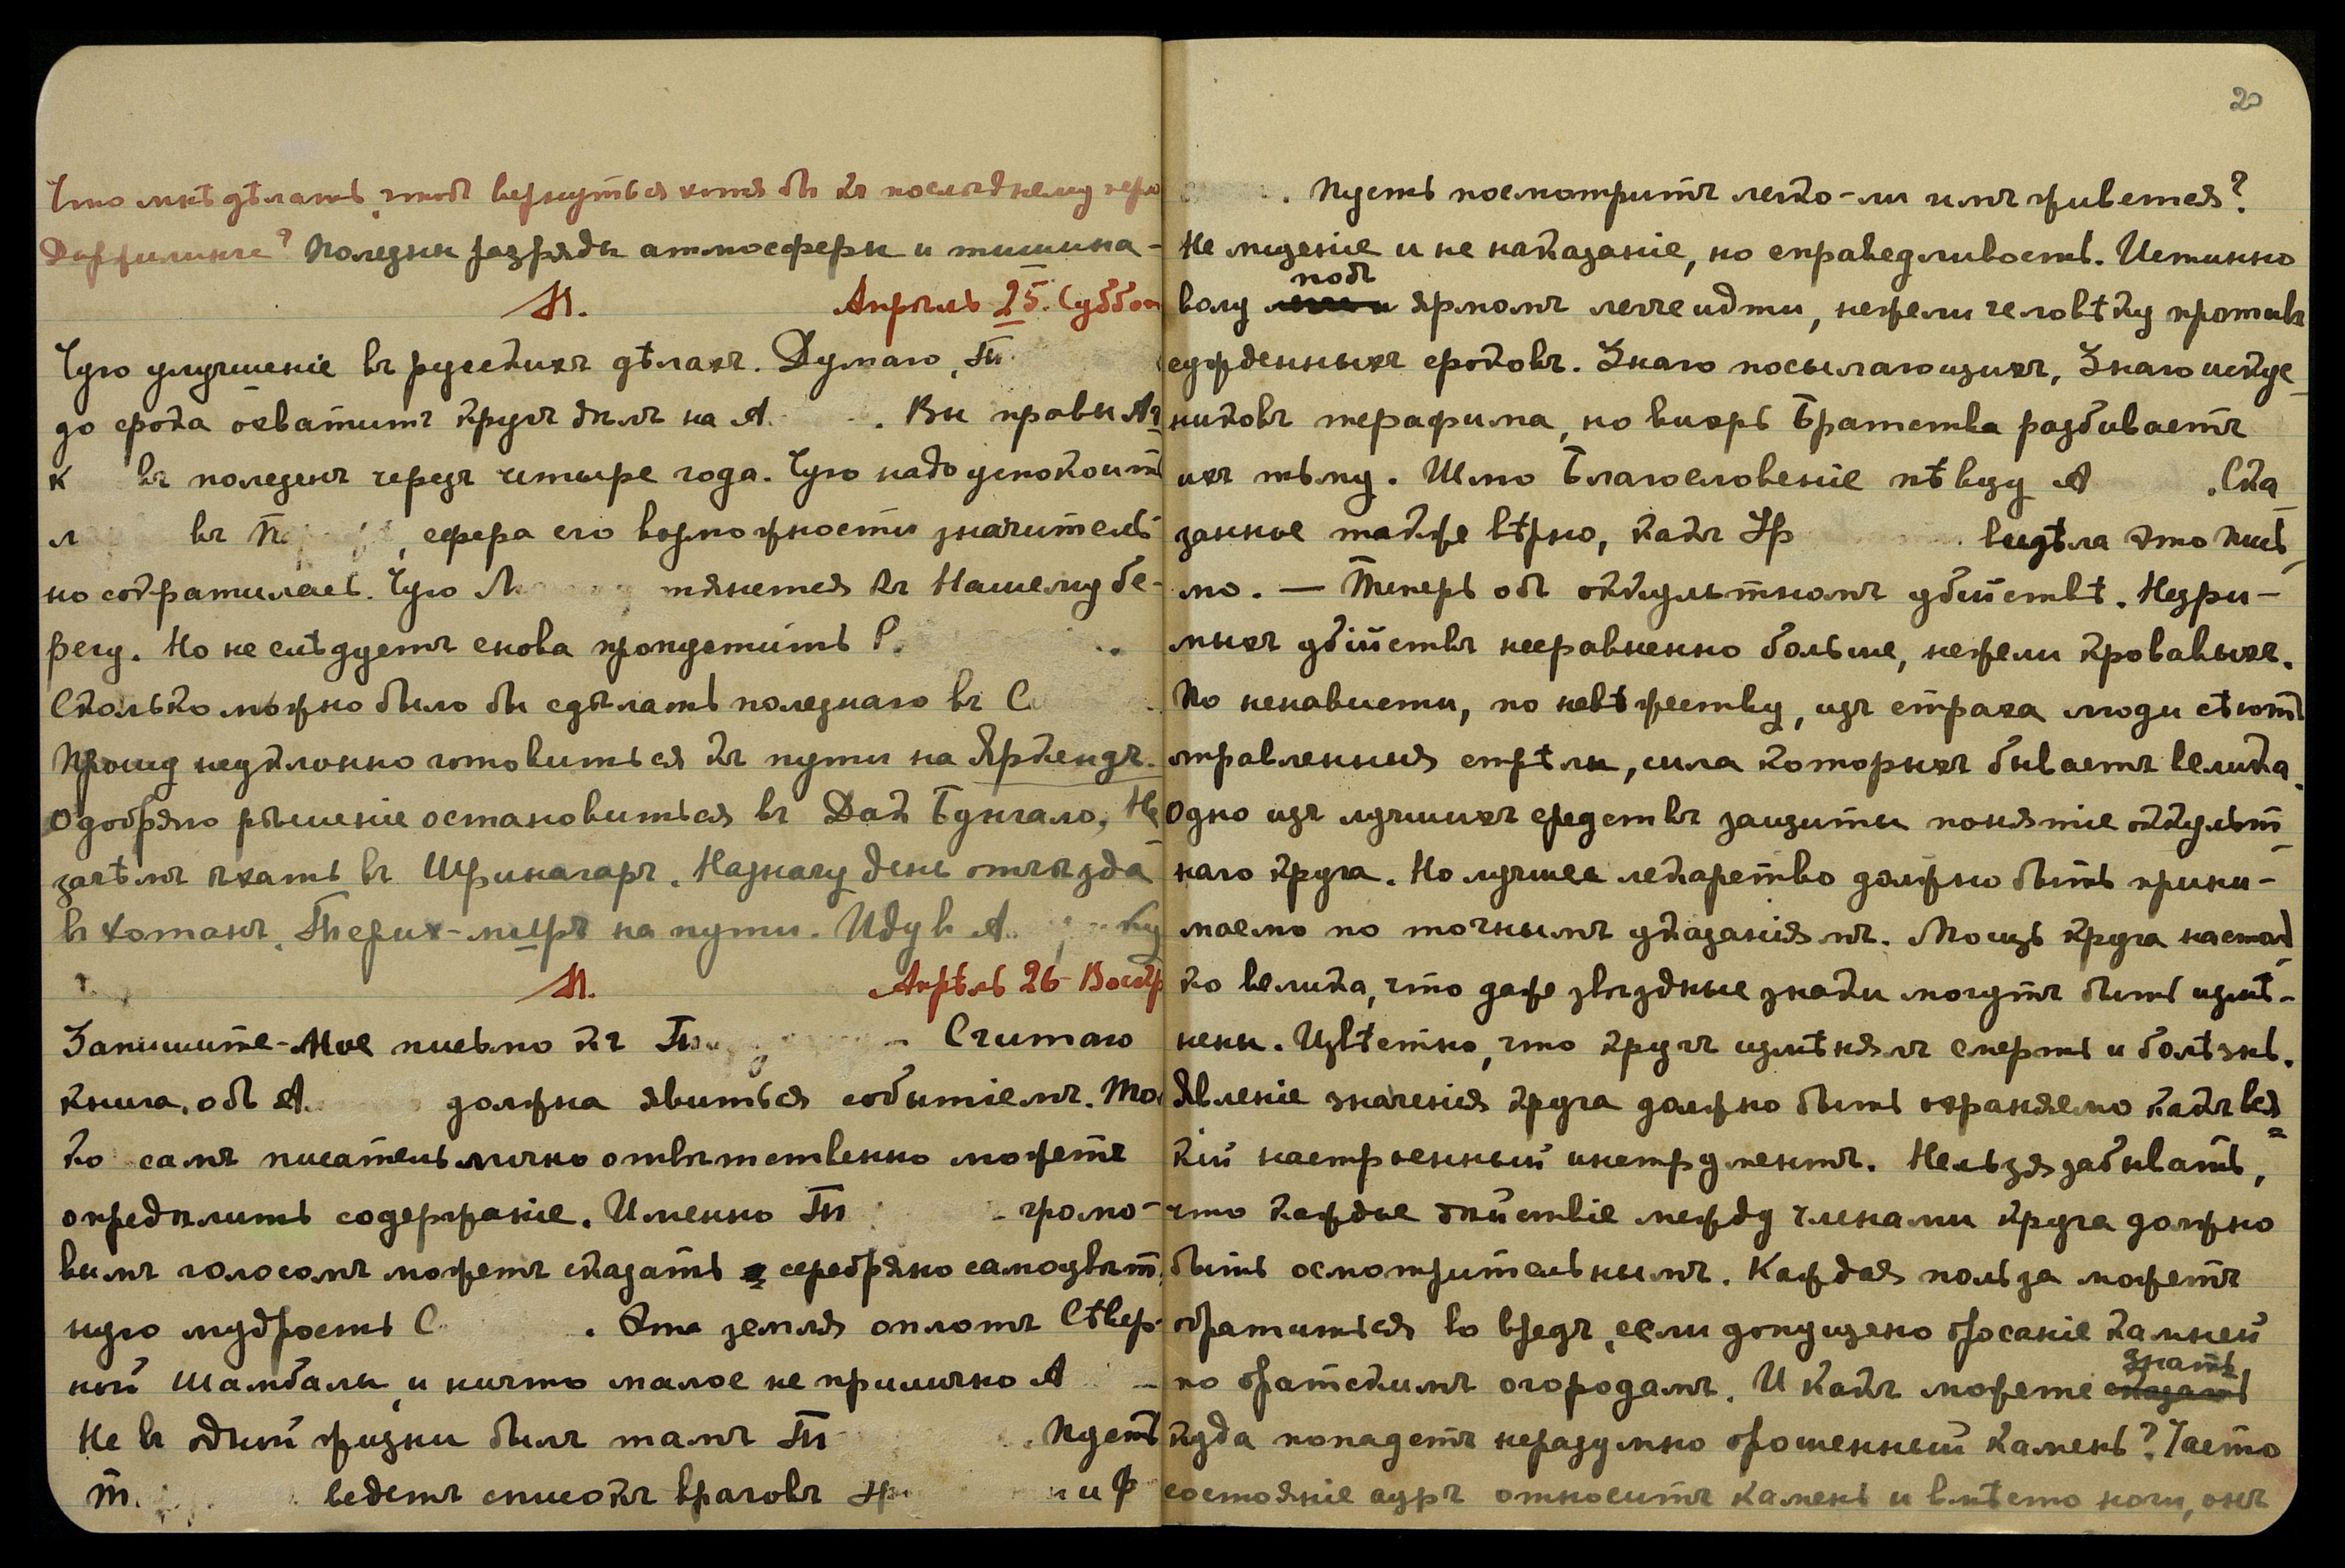 Что мнѣ дѣлать, чтобъ вернуться хотя бы къ послѣднему
Даржилинга? Полезны разряды атмосферы и тишина-
М. Апрѣль 25. Суббот
Чую улучшеніе въ русскихъ дѣлахъ. Думаю,
до срока охватитъ кругъ дѣлъ на А. . Вы правы
К въ полезенъ черезъ четыре года. Чую надо успокоить
л въ П , сфера его возможности значитель-
но сократилась. Чую Л тянется къ Нашему бе-
регу. Но не слѣдуетъ снова пропустить Р.
Сколько можно было бы сдѣлать полезнаго въ С .
Прошу неуклонно готовиться къ пути на Яркендъ.
Одобряю рѣшеніе остановиться въ Дак Бунгало. Не
зачѣмъ ѣхать въ Шринагаръ. Назначу день отъѣзда
въ Хотанъ. Терих-миръ на пути. Иду в А.
М. Апрѣль 26 - Воскр
Запишите - Мое письмо къ Считаю
книга, объ А. должна явиться событіемъ.
ко самъ писатель лично отвѣтственно можетъ
опредѣлить содержаніе. Именно - громо-
вымъ голосомъ можетъ сказать серебряно самоцвѣт-
ную мудрость С . Эта земля оплотъ Сѣвер-
ной Шамбалы, и ничто малое не прилично А -
Не въ одной жизни былъ тамъ . Пусть
Т. ведетъ списокъ враговъ и Ф
20
. Пусть посмотритъ легко-ли имъ живется?
Не мщеніе и не наказаніе, но справедливость. Истинно
волу подъ ярмомъ легче идти, нежели человѣку противъ
сужденныхъ сроковъ. Знаю посылающихъ, Знаю искус-
никовъ терафима, но вихрь Братства разбиваетъ
ихъ тьму. Шлю Благословеніе пѣвцу А . Ска-
занное также вѣрно, какъ видѣла это пись-
мо. — Теперь объ оккультномъ убійствѣ. Незри-
мыхъ убійствъ несравненно больше, нежели кровавыхъ.
По ненависти, по невѣжеству, изъ страха люди сѣютъ
отравленныя стрѣлы, сила которыхъ бываетъ велика.
Одно изъ лучшихъ средствъ защиты понятіе оккульт-
наго круга. Но лучшее лекарство должно быть прини-
маемо по точнымъ указаніямъ. Мощь круга настоль-
ко велика, что даже звѣздные знаки могутъ быть измѣ-
нены. Извѣстно, что кругъ измѣнялъ смерть и болѣзнь.
Явленіе значенія круга должно быть охраняемо какъ вся=
кій настроенный инструментъ. Нельзя забывать,
что каждое дѣйствіе между членами круга должно
быть осмотрительнымъ. Каждая польза можетъ
обратиться во вредъ, если допущено бросаніе камней
по братскимъ огородамъ. И какъ можете знать
куда попадетъ неразумно брошенный камень? Часто
состояніе ауръ относитъ камень и вмѣсто ноги, онъ